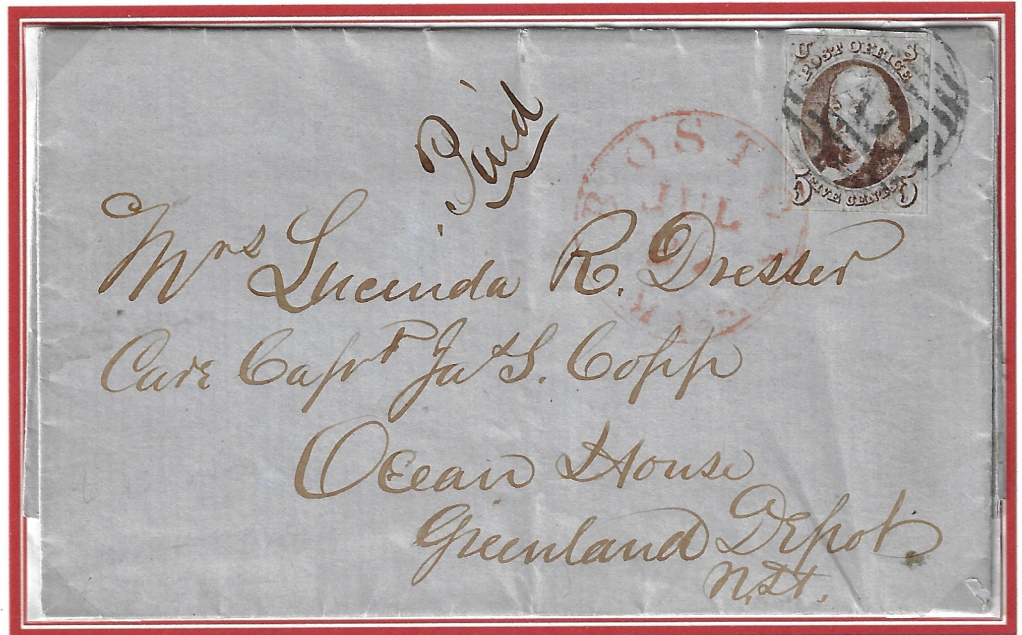 U S
POST OFFICE
FIVE CENTS
Paid
BOSTON
JUL
Mrs Lucinda R. Dresser
Care Capt Jas S. Copp
Ocean House
Greenland Depot
N.H.